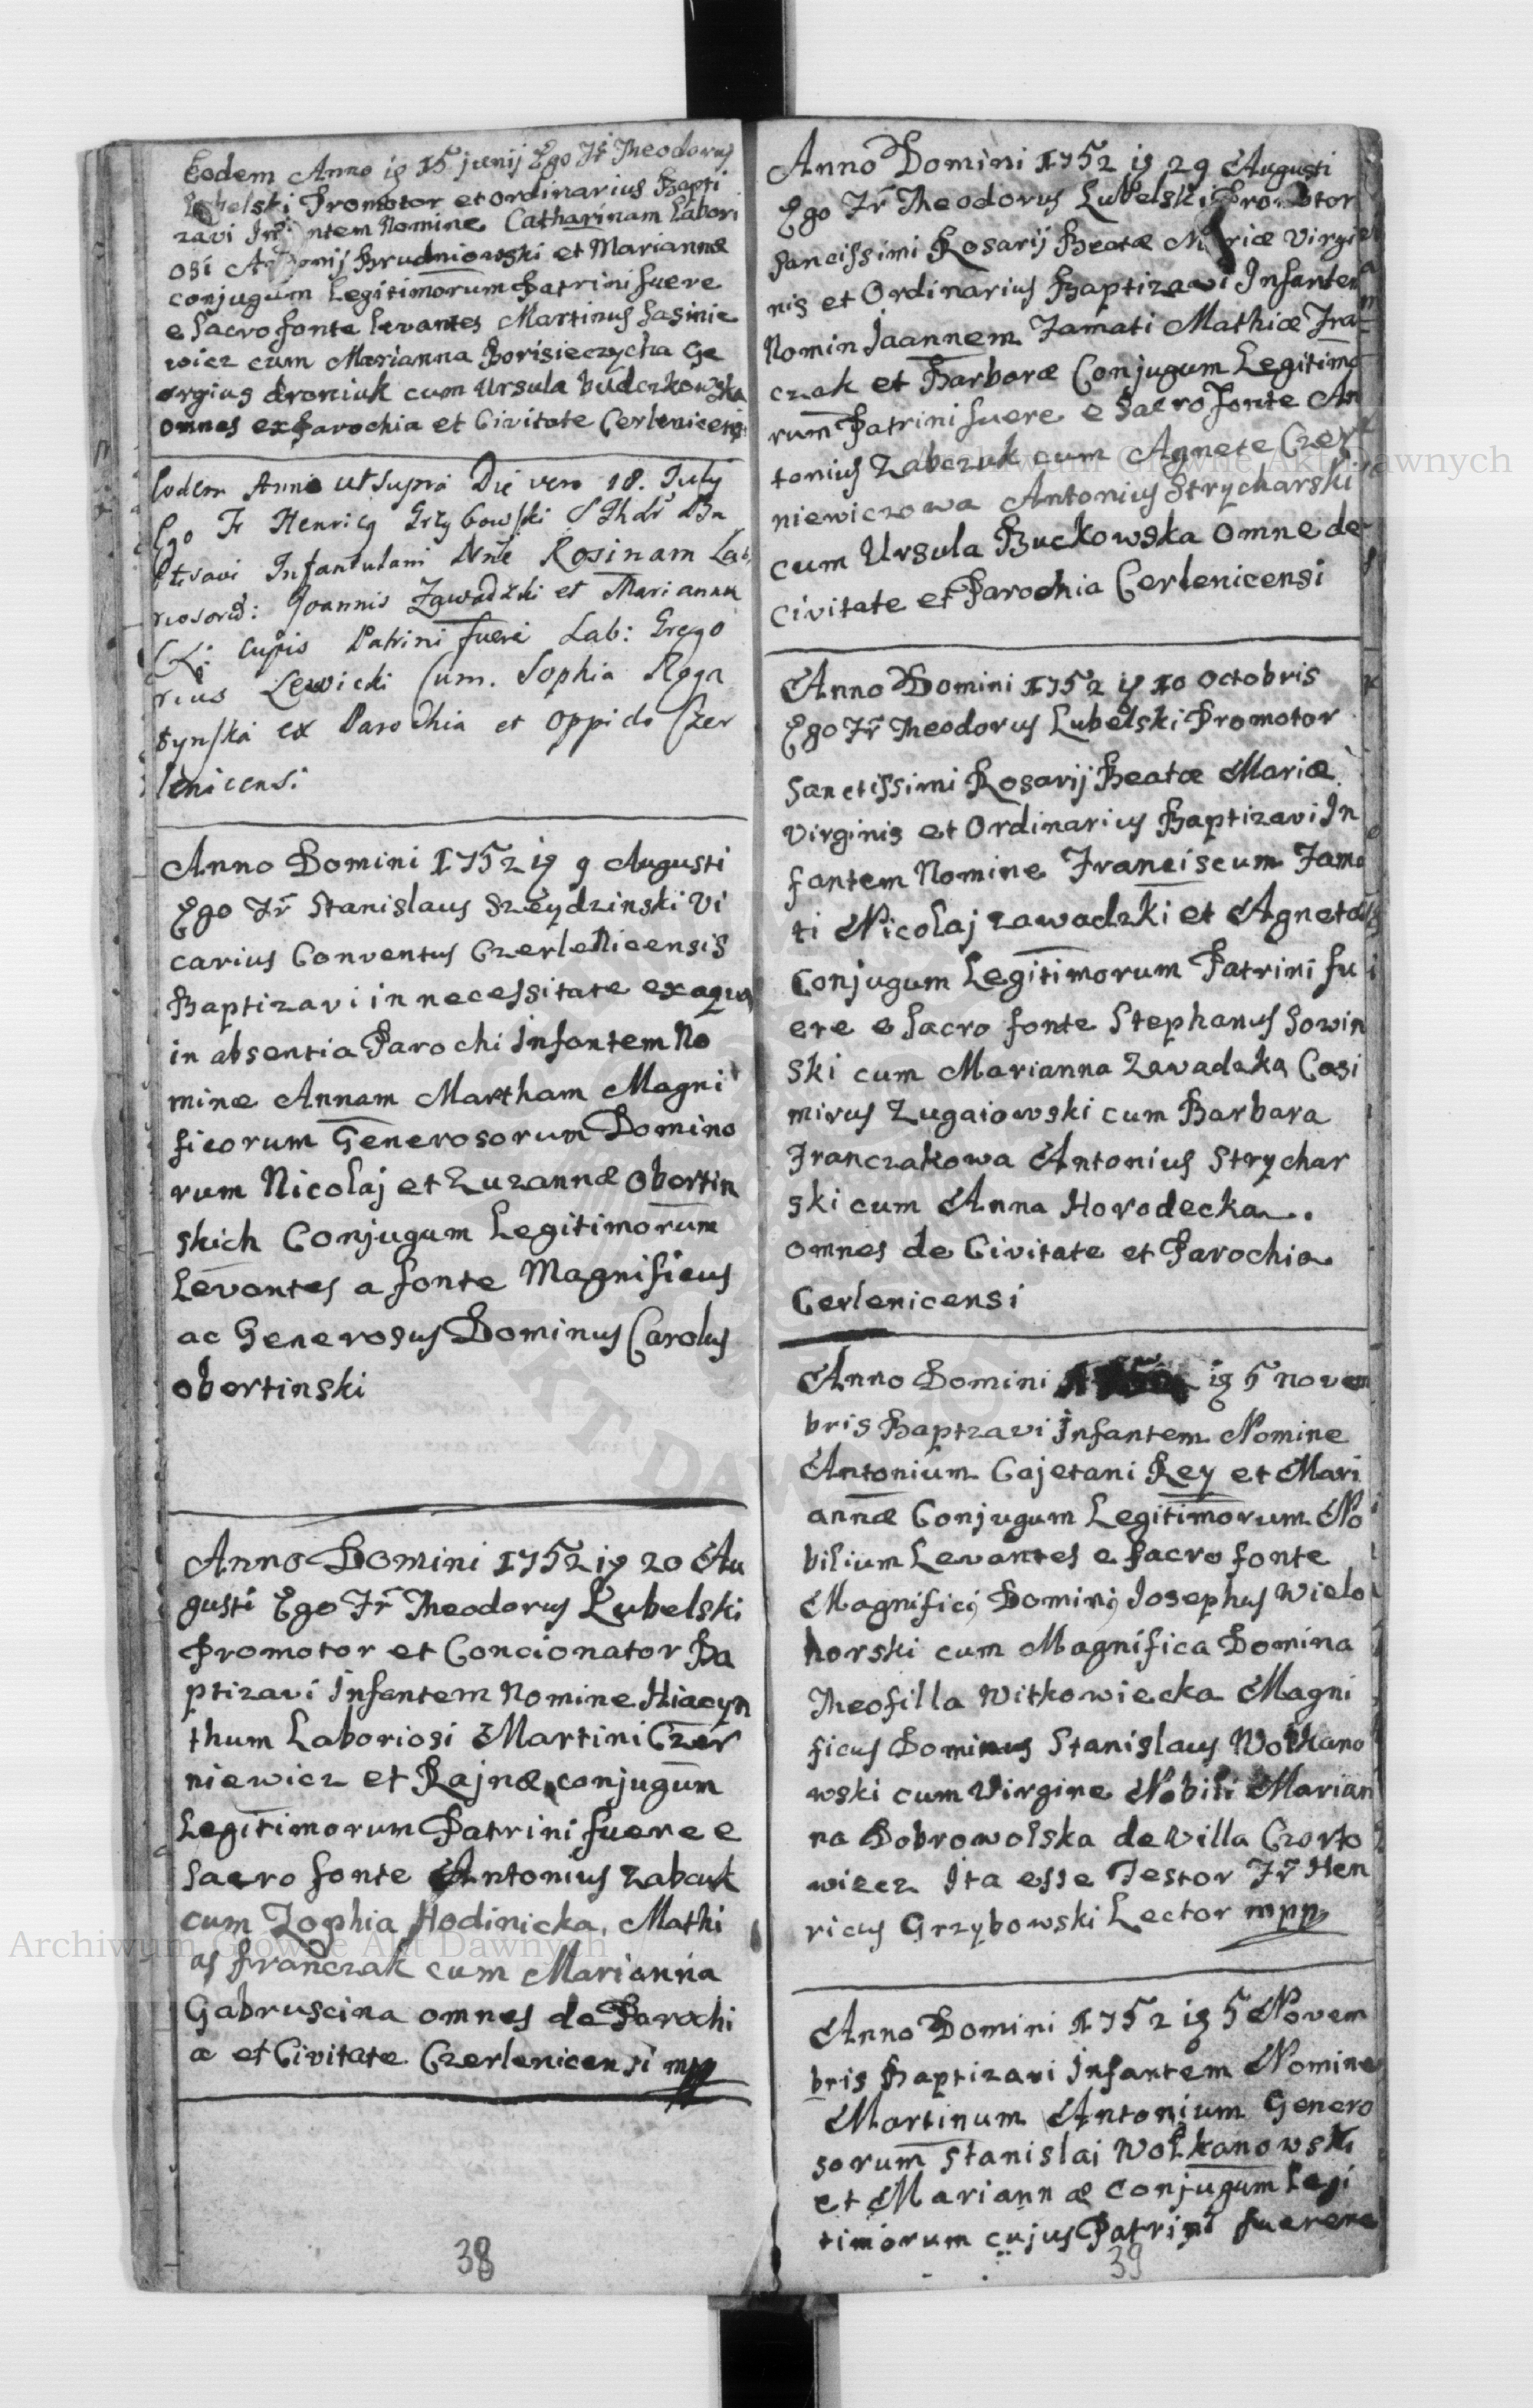 Eodem Anno ig 15 junij Ego Fr Theodorus
Lubelski Promotor et ordinarius Bapti
zavi Infantem Nomine Catharinam Labori
osi Antonij Brudniowski et Mariannæ
conjugum Legitimorum Patrini fuere
e Sacro fonte levantes Martinus Sasinie
wicz cum Marianna Borisieczycha Ge
orgius droniuk cum Ursula budczkowska
omnes ex Parochia et Civitate Cerlenicensi
Eodem Anno ut supra Die vero 18. July
Ego Fr Henricg Grzybowski S Thdr Ba
ptisavi Infantulam Nne Rosinam Lab
riosord: Joannis Zawadzki et Marianna
CL: cujus Patrini fuere Lab: Grego
rius Lewicki Cum. Sophia Roga
tynska ex Parochia et oppido Czer
lenicensi
Anno Domini 1752 ig 9 Augusti
Ego Fr Stanislaus Szeydzinski Vi
carius Conventus Czerlenicensis
Baptizavi in necessitate ex aqua
in absentia Parochi Infantem No
mine Annam Martham Magni
ficorum Generosorum Domino
rum Nicolaj et Zuzannæ Obertin
skich Conjugum Legitimorum
Levantes a fonte Magnificus
ac Generosus Dominus Carolus
obertinski
Anno Domini 1752 ig 20 Au
gusti Ego Fr Theodorus Lubelski
Promotor et Concionator Ba
ptizavi Infantem Nomine Hiacyn
thum Laboriosi Martini Czer
niewicz et Rajnæ conjugum
Legitimorum Patrini fuere e
Sacro fonte Antonius Zabcuk
cum Zophia Hodinicka, Mathi
as franczak cum Marianna
Gabruscina omnes de Parochi
a et Civitate Czerlenicensi mpp
38
Anno Domini 1752 ig 29 Augusti
Ego Fr Theodorus Lubelski Promotor
Sancissimi Rosarij Beatæ Mariæ Virgi
nis et Ordinarius Baptizavi Infantem
Nomin Jaannem Famati Mathiæ Fra
czak et Barboræ Conjugum Legitimo
rum Patrini fuere e Sacro fonte An
tonius Zabczuk cum Agnete Czer
niewiczowa Antonius Strycharski
cum Ursula Buckowska omne de
civitate et Parochia Cerlenicensi
Anno Domini 1752 ig 10 octobris
Ego Fr Theodorus Lubelski Promotor
Sanctissimi Rosarij Beatæ Mariæ
Virginis et Ordinarius Baptizavi In
fantem Nomine Franciscum Fama
ti Nicolaj zawadzki et Agnetæ
Conjugum Legitimorum Patrini fu
ere e Sacro fonte Stephanus Sowin
ski cum Marianna Zawadzka Casi
mirus Zugaiowski cum Barbara
Franczakowa Antonius Strychar
ski cum Anna Horodecka.
omnes de Civitate et Parochia
Cerlenicensi
Anno Domini ig 5 novem
bris Baptzavi Infantem Nomine
Antonium Cajetani Rey et Mari
annæ Conjugum Legitimorum No
bilium Levantes e Sacro fonte
Magnifici Domini Josephus Wielo
horski cum Magnifica Domina
Theofilla Witkowiecka Magni
ficus Dominus Stanislaus Wolkano
wski cum Virgine Nobili Marian
na Dobrowolska de Villa Czorto
wiecz Ita esse Testor Fr Hen
ricus Grzybowski Lector mpp
Anno Domini 1752 ig 5 Novem
bris Baptizavi Infantem Nomine
Martinum Antonium Genero
sorum Stanislai Wolkanowski
et Mariannæ conjugum Legi
timorum cujus Patrini fuerere
39
Archiwum Główne Akt Dawnych
Archiwum Główne Akt Dawnych